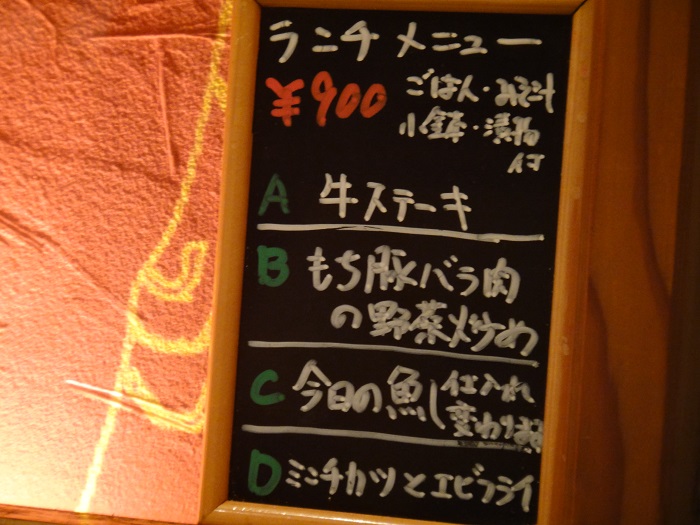 ランチ メニュー
¥900 ごはん・みそ汁
小鉢・漬物
付
A 牛ステーキ
B もち豚バラ肉
の野菜炒め
C 今日の魚 仕入れ
変わります
D ミンチカツとエビフライ